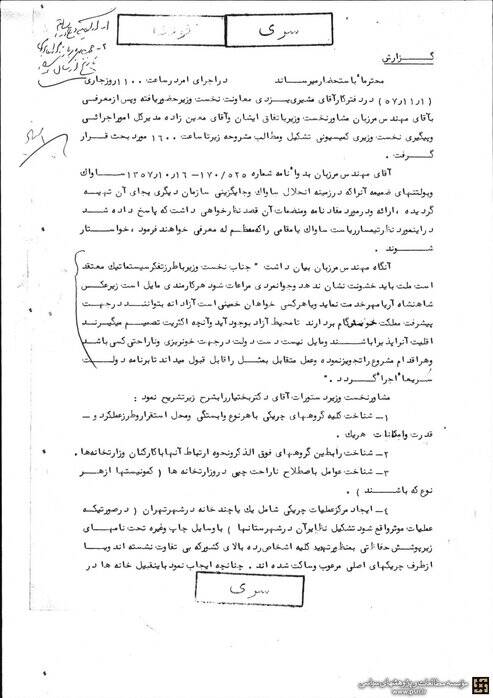 سری
گـــزارش
محترماً باستحضار میرساند در اجرای امر در ساعت ۱۱۰۰ روز جاری
(۵۷/۱۱/۱) در دفتر کار آقای مشیری یزدی معاونت نخست وزیر حضور یافته و پس از معرفی
آقای مهندس مرزبان مشاور نخست وزیر با تفاق ایشان و آقای معین زاده مدیر کل امور اجرائی
و پیگیری نخست وزیری کمیسیونی تشکیل و مطالب مشروحه زیر تا ساعت ۱۶۰۰ مورد بحث قـرار
گـــرفت .
آقای مهندس مرزبان بدواً نامه شماره ۱۷۰/۵۲۵ - ۱۳۵۷/۱۰/۱۶ ســـاواک
و پولتنهای ضمیمه آنرا که در زمینه انحلال ساواک و جایگزینی سازمان دیگری بجای آن تهیـــه
گردیده ، ارائه و در مورد مفاد نامه و منضمات آن قصد نظر خواهی داشت که پاسخ داده شــد
در اینمورد نظر تیمسار ریاست ساواک یا مقامی را که معظم له معرفی خواهند فرمود ، خواستـار
شـــوند .
آنگاه مهندس مرزبان بیان داشت " جناب نخست وزیر با طرز تفکر سیستماتیک معتقد
است ملت باید خشونت نشان ندهد و جوانمردی مراعات شود هر کارمندی مایل است زیر عکس
شاهنشاه آریامهر خدمت نماید و یا هر کس خواهان خمینی است آزادانه بتوانند در جهت
پیشرفت مملکت خویش گام بردارند تا محیط آزاد بوجود آید و آنچه اکثریت تصمیم میگیرنــد
اقلیت آنرا پذیرا باشند و مایل نیست دست دولت در جهت خونریزی و ناراحتی کسی باشد
و هر اقدام مشروع را تجویز نموده و عمل متقابل بمثل را قابل قبول میداند تا برنامه دولـت
سریعاً اجرا گـــردد . "
مشاور نخست وزیر دستورات آقای دکتر بختیار را بشرح زیر تشریح نمود :
۱ـ شناخت کلیه گروههای چریکی با هر نوع وابستگی و محل استقرار و طرز عملکرد و ـ
قدرت و امکانات هریک .
۲ـ شناخت رابطین گروههای فوق الذکر و نحوه ارتباط آنها با کارکنان وزارتخانه ها .
۳ـ شناخت عوامل باصطلاح ناراحت چپی در وزارتخانه ها ( کمونیستها از هـر
نوع که باشـــند ) .
۴ـ ایجاد مرکز عملیات چریکی شامل یک یا چند خانه در شهر تهران ( در صورتیکـه
عملیات موثر واقع شود تشکیل نظایر آن در شهرستانها ) با وسایل چاپ و غیره تحت نامهای
زیر پوشش حفاظتی بمنظور تهدید کلیه اشخاص رده بالای کشور که بی تفاوت نشسته اند و یا
از طرف چریکهای اصلی مرعوب و ساکت شده اند . چنانچه ایجاب نمود با پنفیل خانه ها در
سری
مؤسسه مطالعات و پژوهشهای سیاسی
www.psri.ir